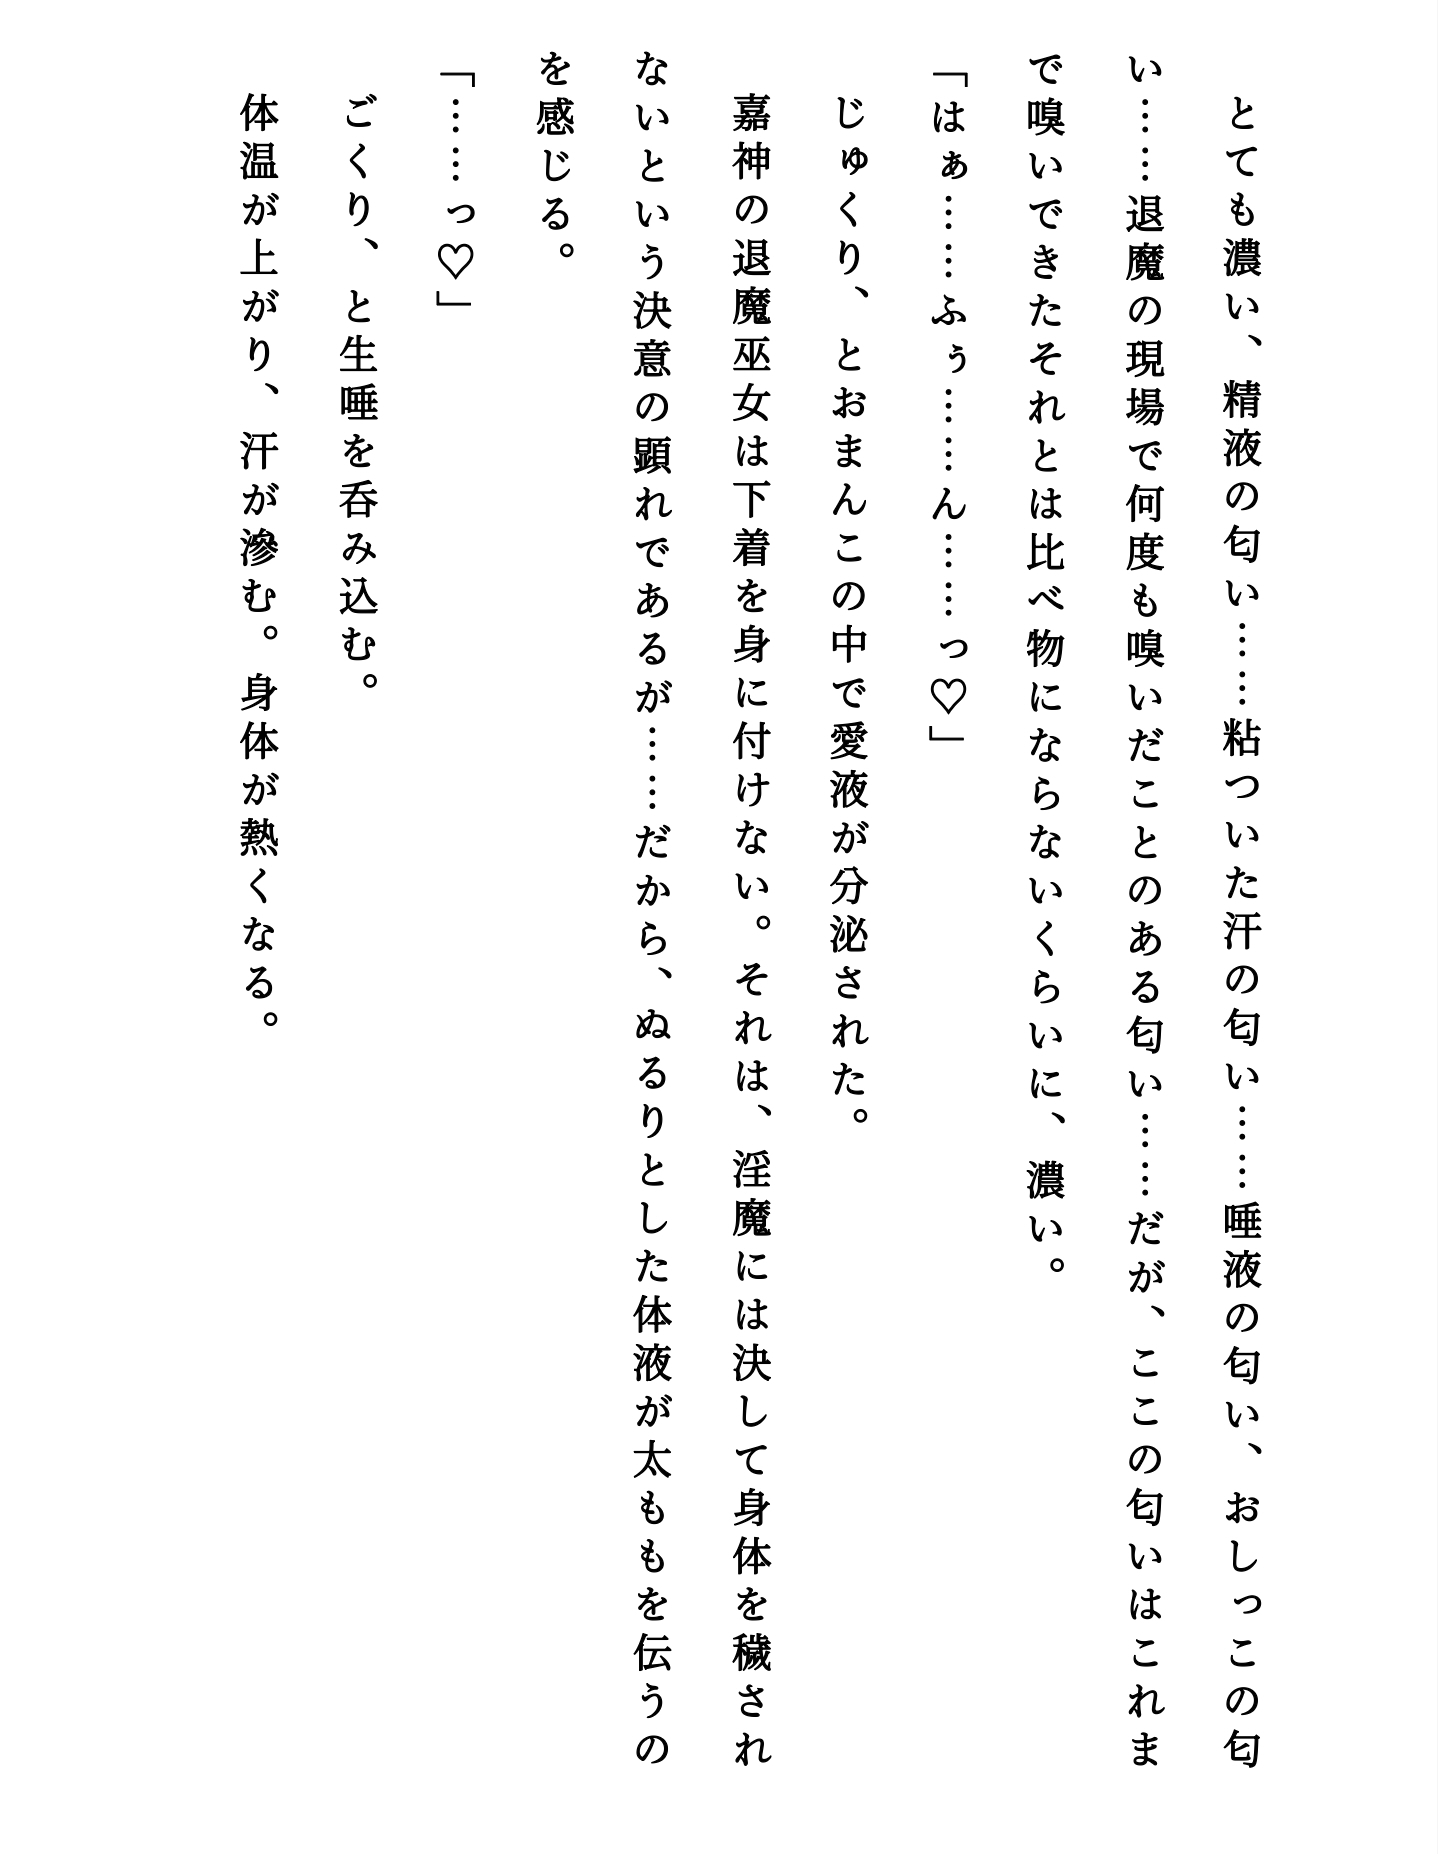 とても濃い、精液の匂い……粘ついた汗の匂い……唾液の匂い、おしっこの匂
い……退魔の現場で何度も嗅いだことのある匂い……だが、ここの匂いはこれま
で嗅いできたそれとは比べ物にならないくらいに、濃い。
「はぁ……ふぅ……ん……っ♡」
じゅくり、とおまんこの中で愛液が分泌された。
嘉神の退魔巫女は下着を身に付けない。それは、淫魔には決して身体を穢され
ないという決意の顕れであるが……だから、ぬるりとした体液が太ももを伝うの
を感じる。
「……っ♡」
ごくり、と生唾を呑み込む。
体温が上がり、汗が滲む。身体が熱くなる。